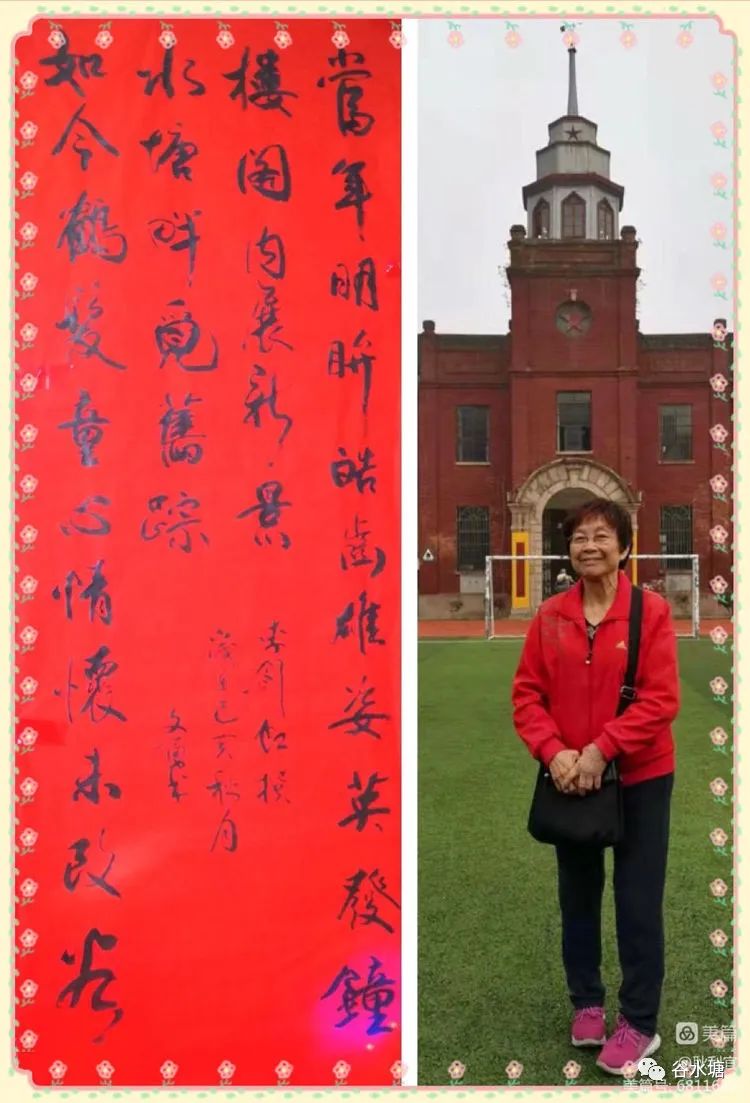 當年明眸皓齒雄姿英發鐘
樓閣內展新景
如今鶴髮童心情懷未改谷
水塘畔覓舊踪
歲在己亥秋月
美篇
美篇号: 68116
谷水塘